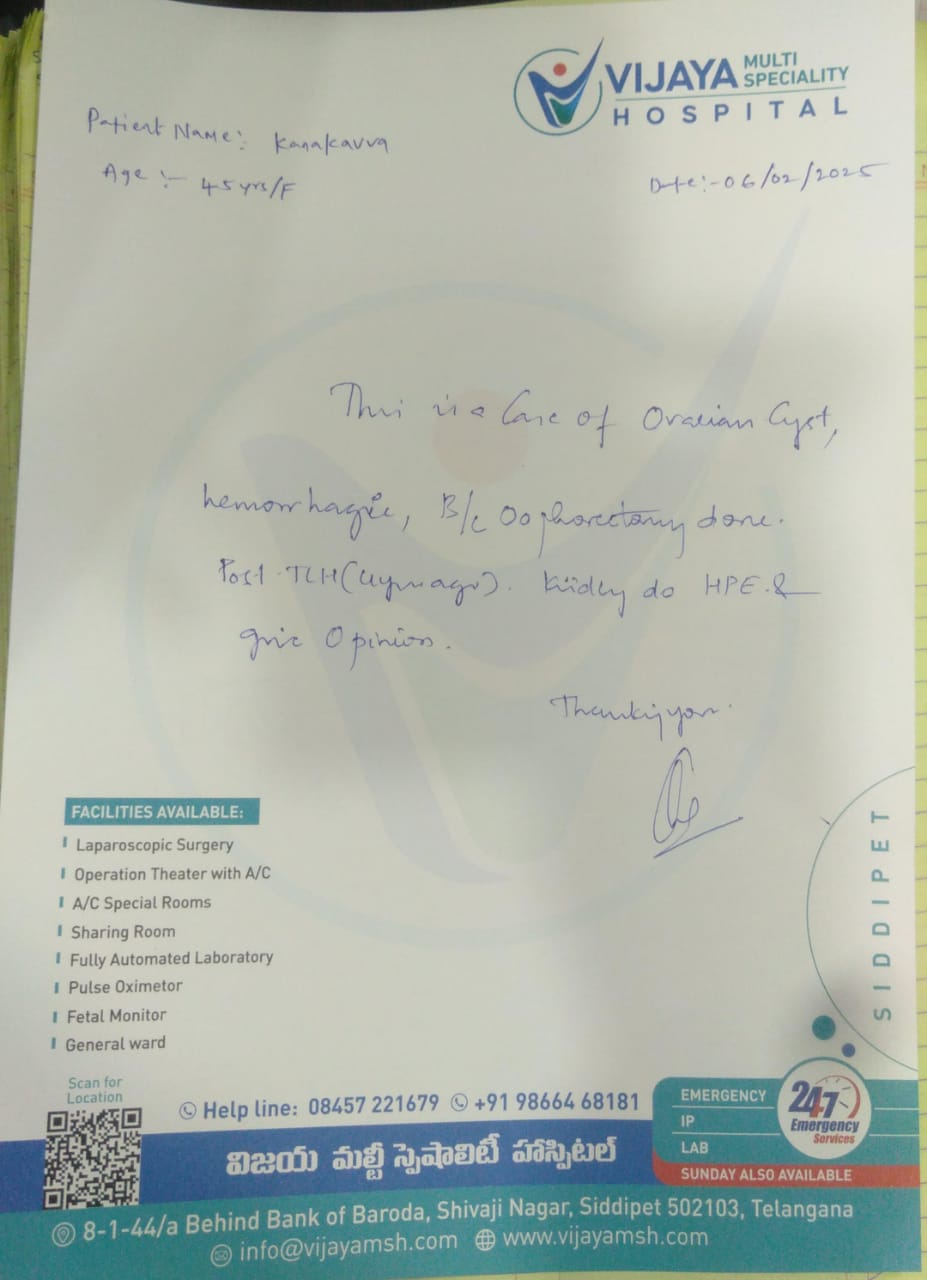 VIJAYA MULTI SPECIALITY
HOSPITAL
Patient Name:- Kanakavva
Age :- 45 yrs/F
Date:- 06/02/2025
This is a Case of Ovarian Cyst,
hemorrhagic, B/L Oophorectomy done.
Post TLH ( ). Kindly do HPE &
give Opinion.
Thanking you.
FACILITIES AVAILABLE:
Laparoscopic Surgery
Operation Theater with A/C
A/C Special Rooms
Sharing Room
Fully Automated Laboratory
Pulse Oximetor
Fetal Monitor
General ward
SIDDIPET
Scan for
Location
Help line: 08457 221679 +91 98664 68181
EMERGENCY
IP
LAB
SUNDAY ALSO AVAILABLE
24*7
Emergency
Services
విజయ మల్టీ స్పెషాలిటీ హాస్పిటల్
8-1-44/a Behind Bank of Baroda, Shivaji Nagar, Siddipet 502103, Telangana
info@vijayamsh.com www.vijayamsh.com